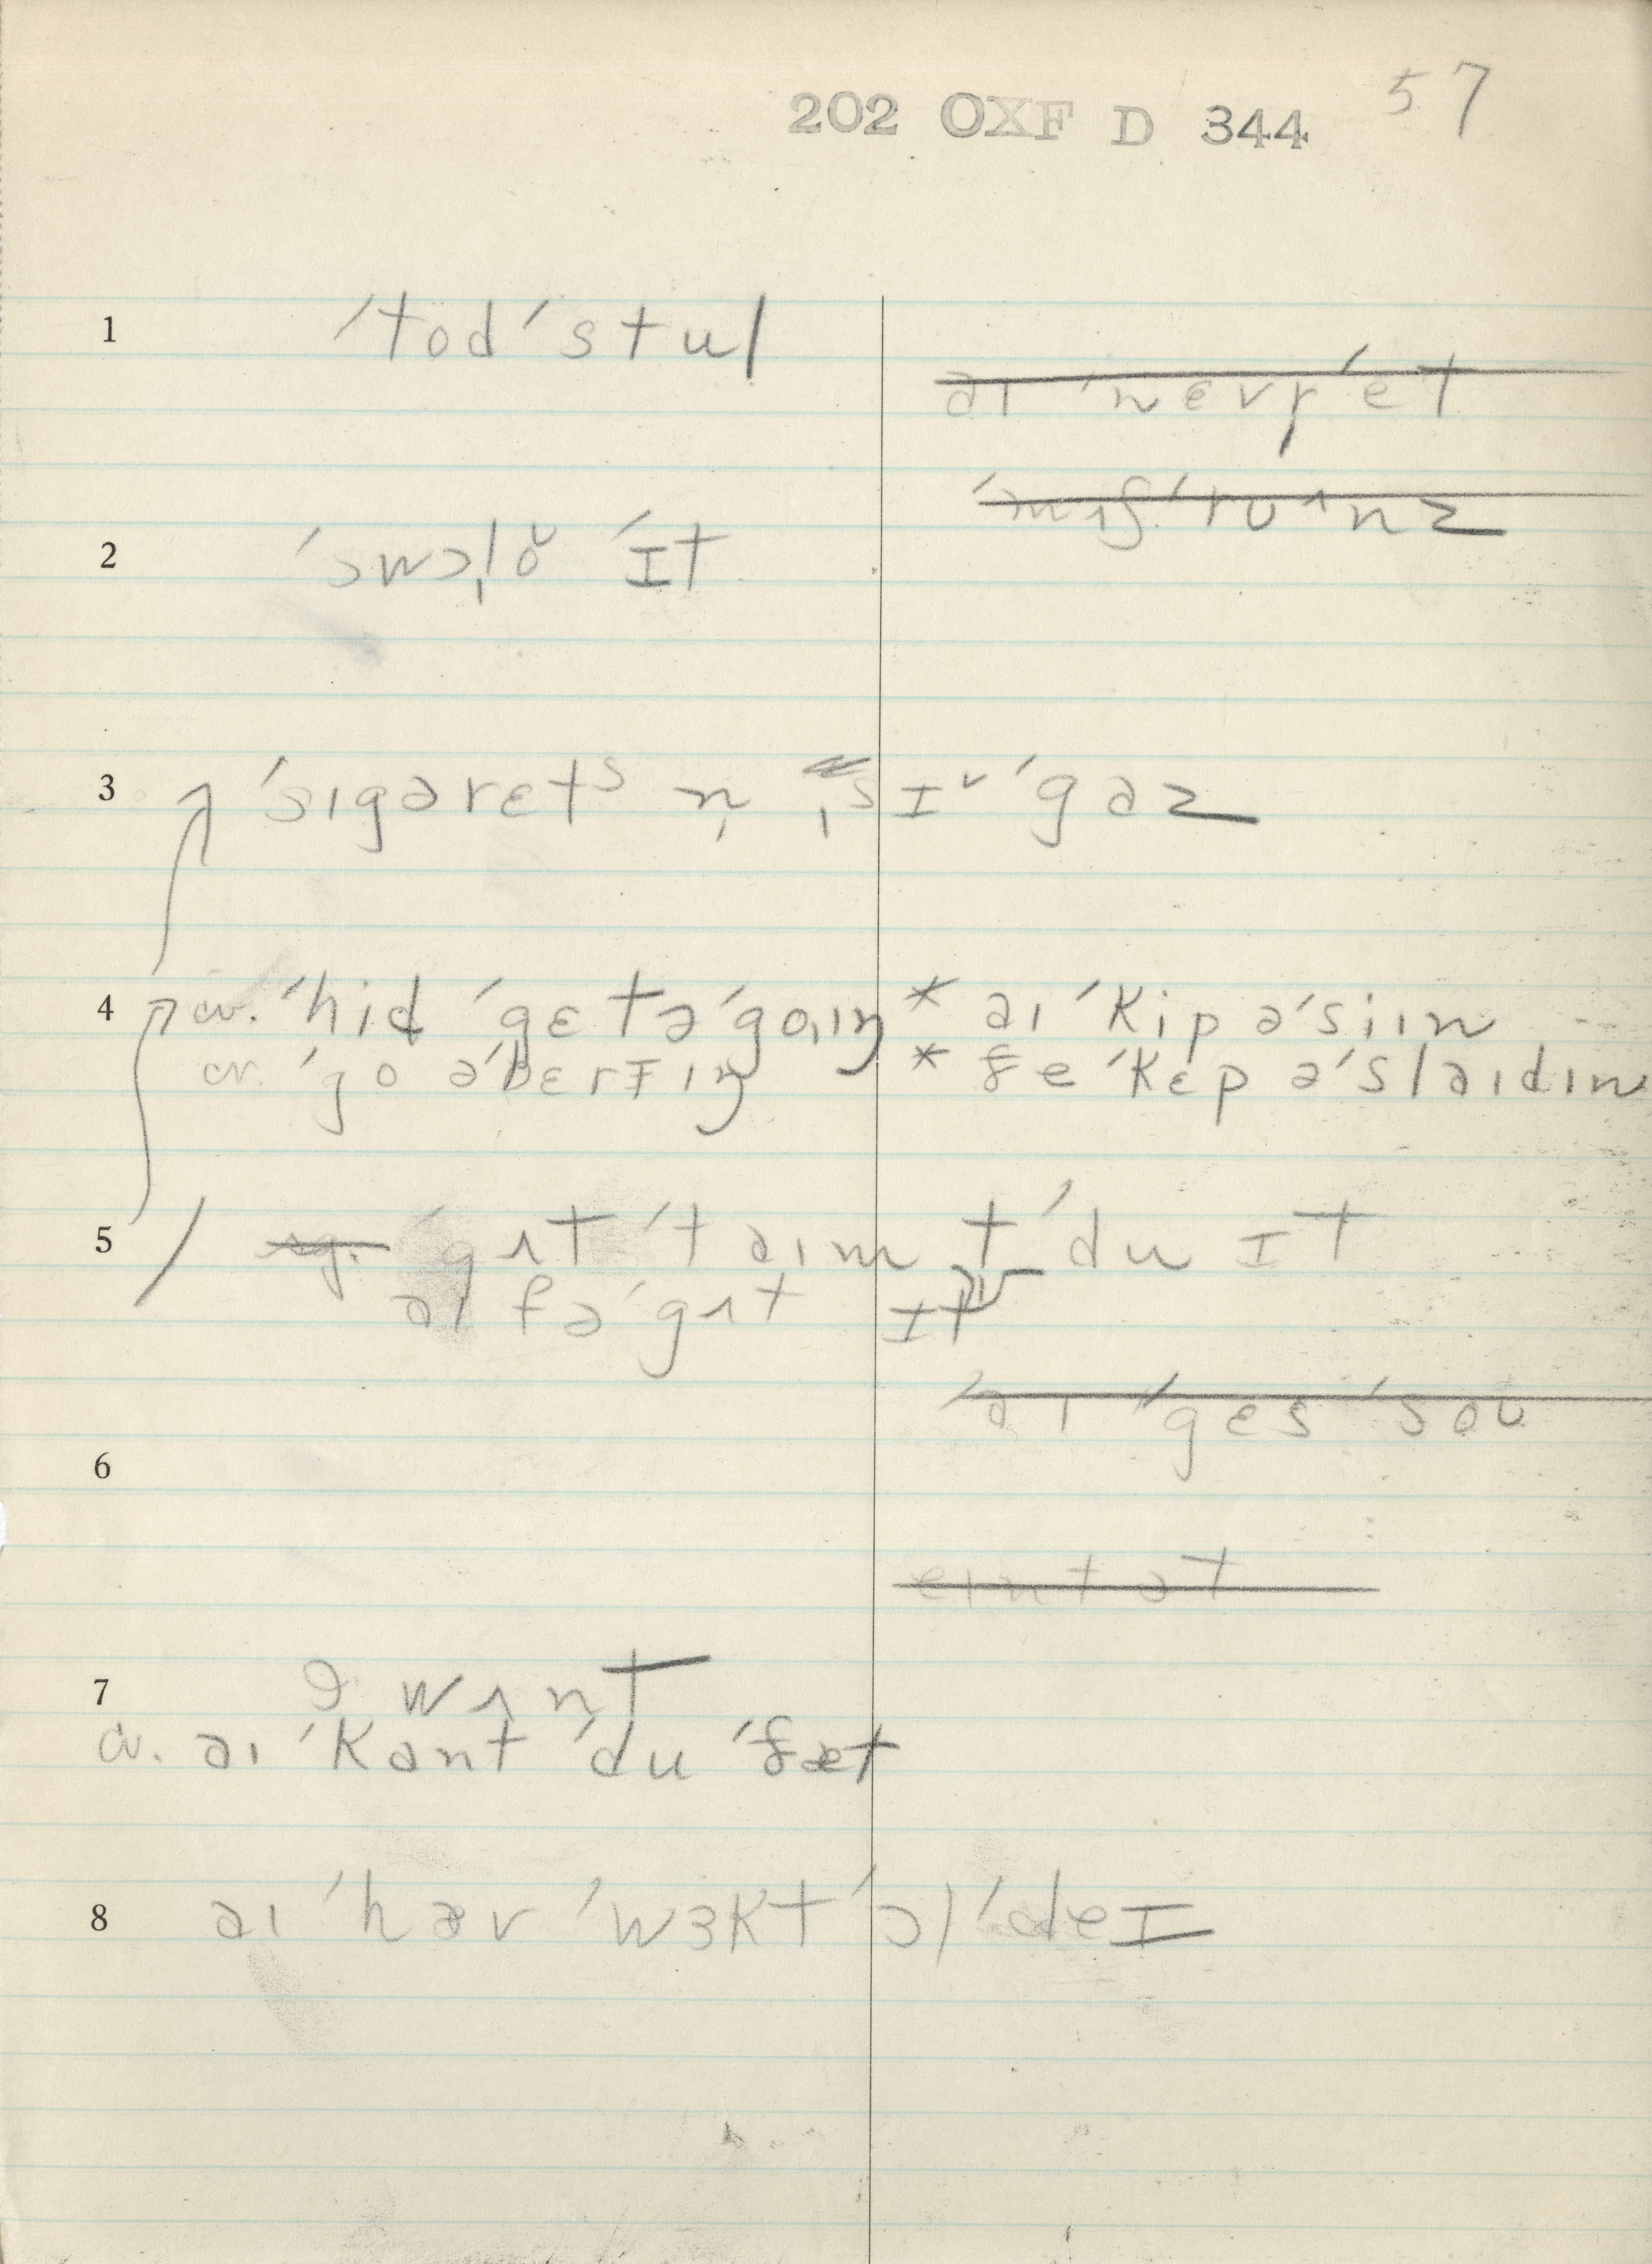 202 OXF D 344 57
1 ˈtodˈstul
a ɪ ˈnɛvr̩ ˈet
2 ˈswɔˌlŏ ˈɪt
3 ˈsɪgarɛtˢ n̩ ˌsɪˇˈgaz
4 cv. ˈhid ˈgɛt əˈgoˌɪŋ * aɪ ˈkip əˈsiɪn
cv. ˈgo əˈbɛrɪɪŋ * ðe ˈkɛp əˈslaɪdɪn
5 ˈgʌt ˈtaɪm t ˈdu ɪt
aɪ fəˈgʌt ɪt
aɪ ˈgɛs ˈsoʊ
6
7 ə wʌnt
cv. aɪ ˈkant ˈdu ˈðæt
8 aɪ ˈhæv ˈwɜkt ˈɔl ˈdeɪ